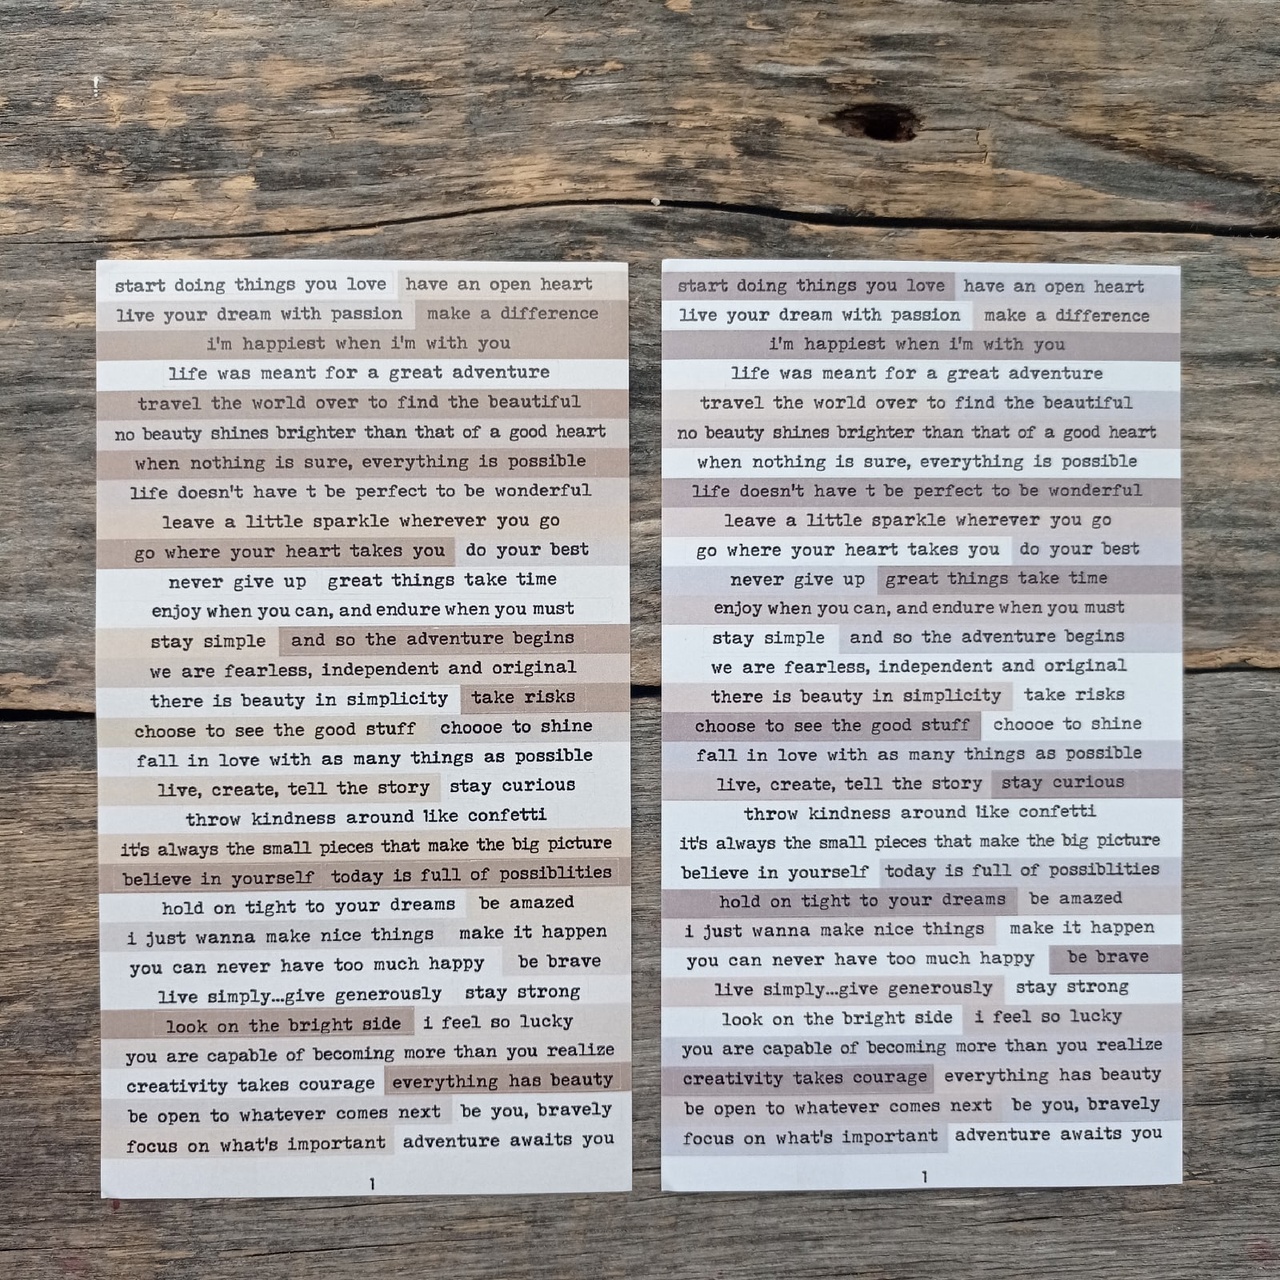 start doing things you love have an open heart
live your dream with passion make a difference
i'm happiest when i'm with you
life was meant for a great adventure
travel the world over to find the beautiful
no beauty shines brighter than that of a good heart
when nothing is sure, everything is possible
life doesn't have t be perfect to be wonderful
leave a little sparkle wherever you go
go where your heart takes you do your best
never give up great things take time
enjoy when you can, and endure when you must
stay simple and so the adventure begins
we are fearless, independent and original
there is beauty in simplicity take risks
choose to see the good stuff choooe to shine
fall in love with as many things as possible
live, create, tell the story stay curious
throw kindness around like confetti
it's always the small pieces that make the big picture
believe in yourself today is full of possiblities
hold on tight to your dreams be amazed
i just wanna make nice things make it happen
you can never have too much happy be brave
live simply...give generously stay strong
look on the bright side i feel so lucky
you are capable of becoming more than you realize
creativity takes courage everything has beauty
be open to whatever comes next be you, bravely
focus on what's important adventure awaits you
1
start doing things you love have an open heart
live your dream with passion make a difference
i'm happiest when i'm with you
life was meant for a great adventure
travel the world over to find the beautiful
no beauty shines brighter than that of a good heart
when nothing is sure, everything is possible
life doesn't have t be perfect to be wonderful
leave a little sparkle wherever you go
go where your heart takes you do your best
never give up great things take time
enjoy when you can, and endure when you must
stay simple and so the adventure begins
we are fearless, independent and original
there is beauty in simplicity take risks
choose to see the good stuff choooe to shine
fall in love with as many things as possible
live, create, tell the story stay curious
throw kindness around like confetti
it's always the small pieces that make the big picture
believe in yourself today is full of possiblities
hold on tight to your dreams be amazed
i just wanna make nice things make it happen
you can never have too much happy be brave
live simply...give generously stay strong
look on the bright side i feel so lucky
you are capable of becoming more than you realize
creativity takes courage everything has beauty
be open to whatever comes next be you, bravely
focus on what's important adventure awaits you
1